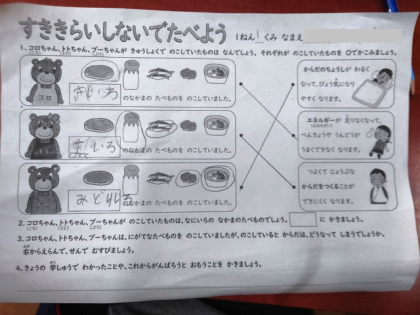 すききらいしないでたべよう
1ねん 1 くみ なまえ
1. コロちゃん、トトちゃん、プーちゃんが きゅうしょくで のこしていたものは なんでしょう。それぞれが のこしていたものを ○でかこみましょう。
コロ
きいろ
のなかまの たべものを のこしていました。
からだのちょうしが わるく
なって、びょう気になり
やすく なります。
のなかまの たべものを のこしていました。
エネルギーが 足りなくなって、
べんきょうや うんどうが
うまくできなく なります。
みどり
のなかまの たべものを のこしていました。
つよくて じょうぶな
からだをつくることが
できにくく なります。
2. コロちゃん、トトちゃん、プーちゃんが のこしていたものは、なにいろの なかまのたべものでしょう。 に かきましょう。
3. コロちゃん、トトちゃん、プーちゃんは、にがてなたべものを のこしていましたが、のこしていると からだは、どうなって しまうでしょうか。
右からえらんで、せんで むすびましょう。
4. きょうの 学しゅうで わかったことや、これからがんばろうと おもうことを かきましょう。